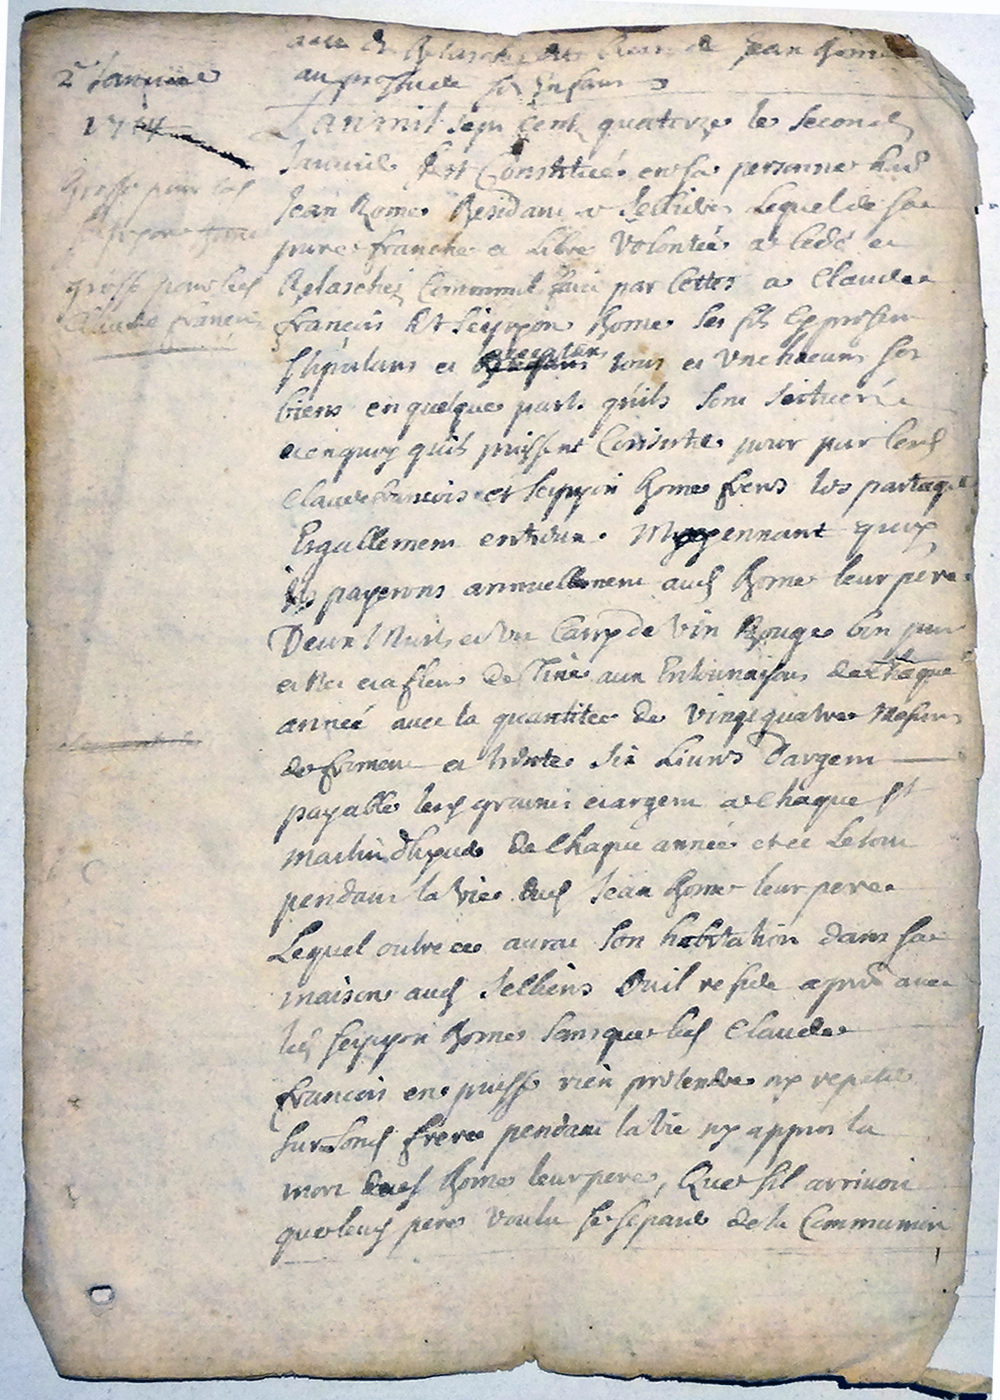 2e Janvier
1714
Grosse pour led
Seippion Rome
grosse pour led
Claude françois
acte de Relaschée des biens de Jean Rome
au proffit de ses Enfans
L'an mil sept cent quatorze le second
Janvier s'est Constitué en sa personne hu
Jean Rome Residant a Lequel de sa
pure franche et Libre Volonté a cedé et
Relasché Comme il fait par cettes a Claude
françois et Seippion Rome ses fils Cy presen
stipulans et acceptans tous et Vnchacuns ses
biens en quelque part quils soint scitués
et en quoy quils puissent Consiste pour par lesd
Claude francois et Seippion Rome freres les partag
Esgallement entreux. Moyennant quoy
ils payeront annuellement aud Rome leur pere
Deux Muids et Vn de Vin Rouge bon pur
et Net aux Entonnaisons de chaque
année avec la quantitee de Vingt quatre Mesures
de froment et trente six Livres d'argent
payable lesd graines et argent a Chaque st
Martin d'hyver de Chaque année et ce Le tout
pendant la Vie dud Jean Rome leur pere
Lequel outre ce aurat son habitation dans sa
maison aud ou il reside a pnt avec
led Seippion Rome sans que led Claude
francois en puisse rien pretendre ny repeter
sur sond frere pendant la Vie ny appres la
mort dud Rome leur pere, Que sil arrivoit
que leur pere Voulu se separé de la Communion